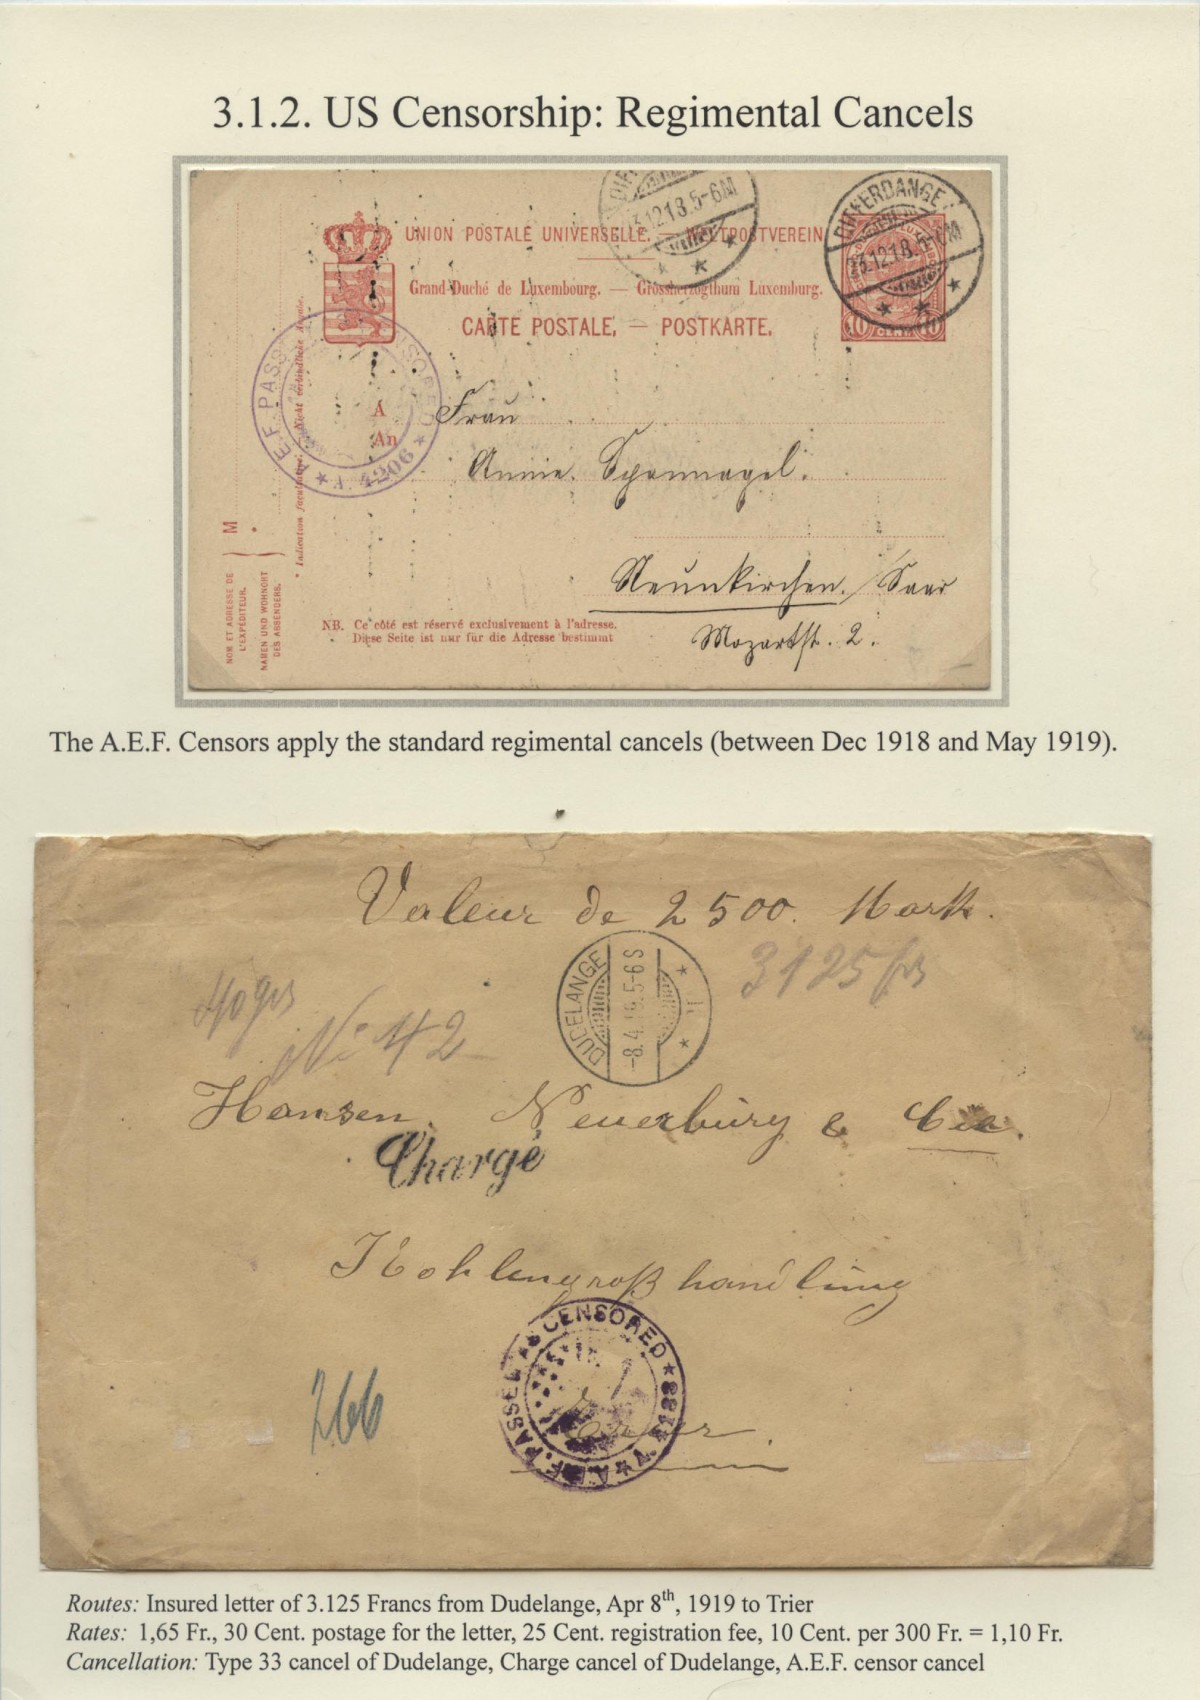 3.1.2. US Censorship: Regimental Cancels
DIFFERDANGE
23.12.18.5-6M
3.12.18.5-6M
UNION POSTALE UNIVERSELLE. — WELTPOSTVEREIN
Grand-Duché de Luxembourg. — Grossherzogthum Luxemburg.
CARTE POSTALE, — POSTKARTE.
10 10
A.E.F. PASSED AS CENSORED
A. 4206
A
An
Frau
Annie. Spannagel.
Neunkirchen. / Saar
Mozartst. 2.
* Indication facultative. — Nicht verbindliche Angabe.
M *
NOM ET ADRESSE DE
L'EXPÉDITEUR.
NAMEN UND WOHNORT
DES ABSENDERS.
NB. Ce côté est réservé exclusivement à l'adresse.
Diese Seite ist nur für die Adresse bestimmt
The A.E.F. Censors apply the standard regimental cancels (between Dec 1918 and May 1919).
Valeur de 2500. Mark.
3125 frs
DUDELANGE
-8.4.19.5-6S
No 42
Hansen, Neuerburg & Cie.
Chargé
Kohlengroßhandlung
A.E.F. PASSED AS CENSORED
Trier.
266
Routes: Insured letter of 3.125 Francs from Dudelange, Apr 8th, 1919 to Trier
Rates: 1,65 Fr., 30 Cent. postage for the letter, 25 Cent. registration fee, 10 Cent. per 300 Fr. = 1,10 Fr.
Cancellation: Type 33 cancel of Dudelange, Charge cancel of Dudelange, A.E.F. censor cancel